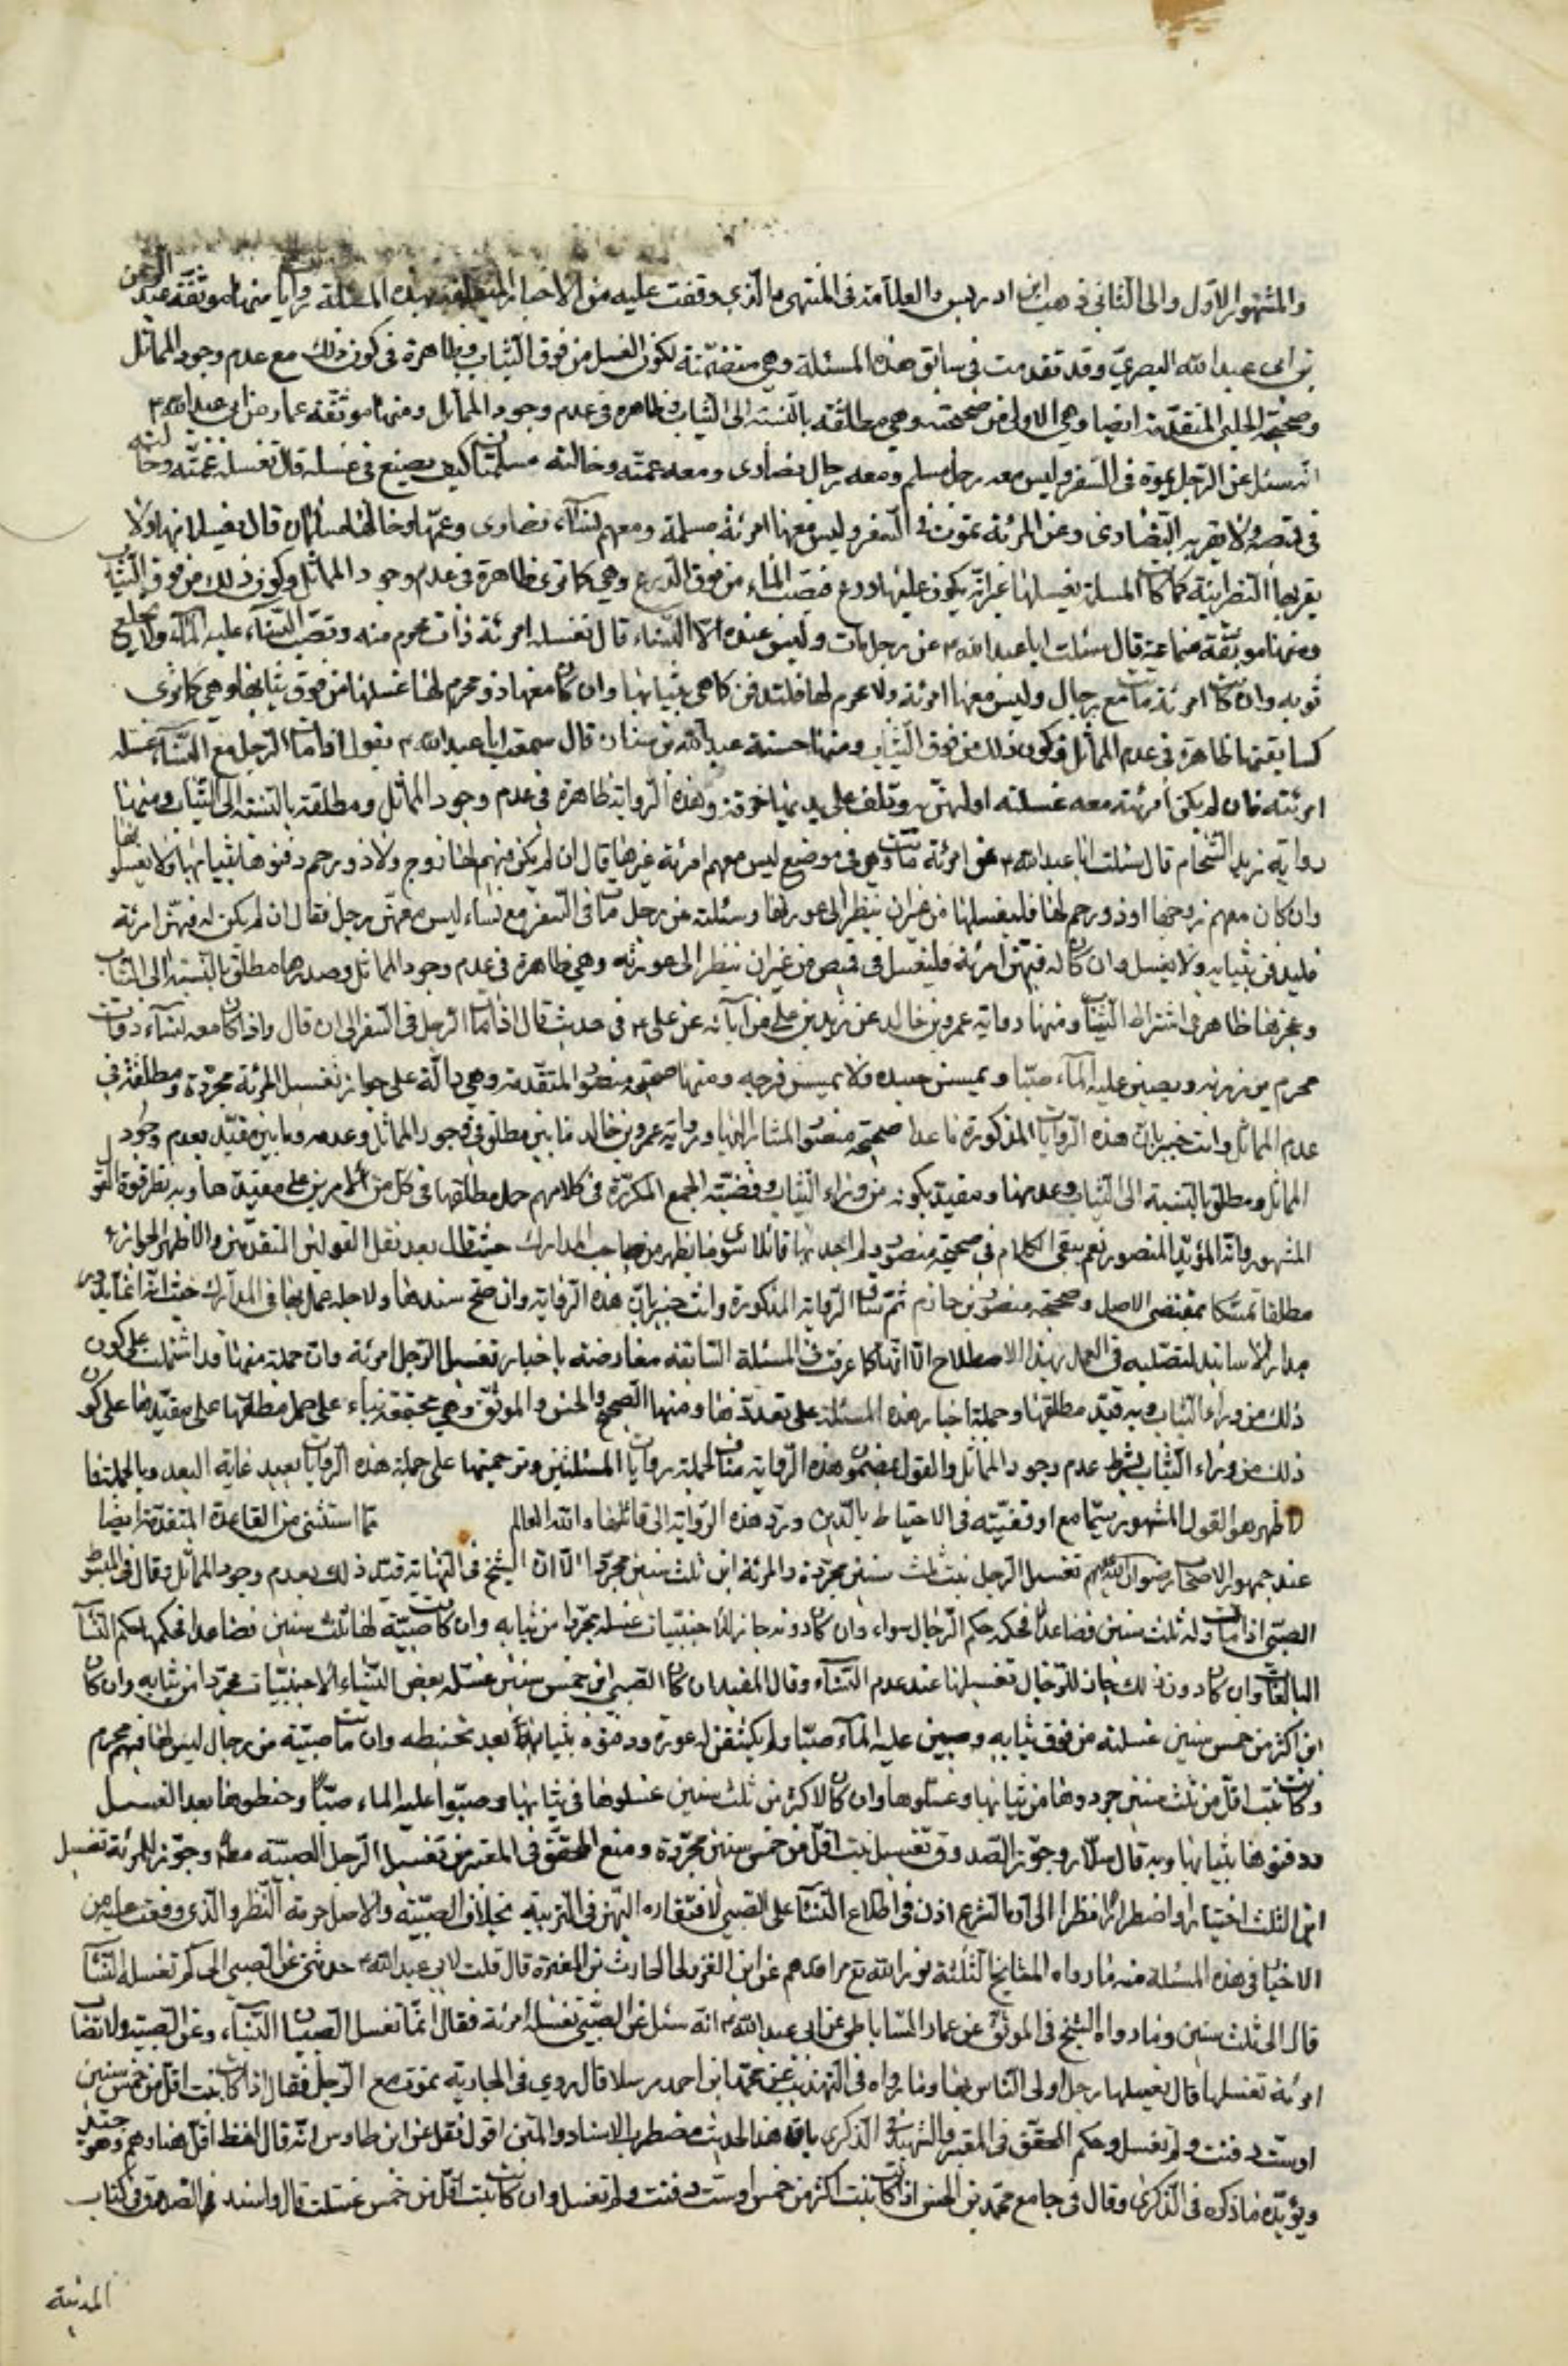 والمشهور الاول والى الثانى ذهب ابن ادريس والعلامة فى المنتهى والذي وقفت عليه من الاخبار المتعلقة بهذه المسئلة روايات منها موثقة عبد الرحمن
بن ابى عبد الله البصرى وقد تقدمت فى سابق هذه المسئلة وهى متضمنة لكون الغسل من فوق الثياب وظاهرة فى كون ذلك مع عدم وجود المماثل
وصحيحة الحلبى المتقدمة ايضا وهى الاولى من صحيحتيه وهى مطلقة بالنسبة الى الثياب ظاهرة فى عدم وجود المماثل ومنها موثقة عمار عن ابى عبد الله ع
انه سئل عن الرجل يموت فى السفر وليس معه رجل مسلم ومعه رجال نصارى ومعه عمته وخالته مسلمتان كيف يصنع فى غسله قال تغسله عمته وخالته
فى قميصه ولا يقربه النصارى وعن المرئة تموت فى السفر وليس معها امرئة مسلمة ومعهم نساء نصارى وعمها وخالها مسلمان قال يغسلانها ولا
يقربها النصرانية كما كانت المسلمة يغسلها غير انه يكون عليها درع فيصب الماء من فوق الدرع وهى كما ترى ظاهرة فى عدم وجود المماثل وكون ذلك من فوق الثياب
ومنها موثقة سماعة قال سئلت ابا عبد الله ع عن رجل مات وليس عنده الا النساء قال تغسله امرئة ذات محرم منه وتصب النساء عليه الماء ولا تخلع
ثوبه وان كانت امرئة ماتت مع رجال وليس معها امرئة ولا محرم لها فلتدفن كما هى بثيابها وان كان معها ذو محرم لها غسلها من فوق ثيابها وهى كما ترى
كسابقتها ظاهرة فى عدم المماثل وكون ذلك من فوق الثياب ومنها حسنة عبد الله بن سنان قال سمعت ابا عبد الله ع يقول اذا مات الرجل مع النساء غسلته
امرئته فان لم يكن امرئته معه غسلته اولهن به وتلف على يديها خرقة وهذه الرواية ظاهرة فى عدم وجود المماثل ومطلقة بالنسبة الى الثياب ومنها
رواية زيد الشحام قال سئلت ابا عبد الله ع عن امرئة ماتت وهى فى موضع ليس معهم امرئة غيرها قال ان لم يكن فيهم لها زوج ولا ذو رحم دفنوها بثيابها ولا يغسلونها
وان كان معهم زوجها او ذو رحم لها فليغسلها من غير ان ينظر الى عورتها وسئلته عن رجل مات فى السفر مع نساء ليس معهن رجل فقال ان لم يكن له فيهن امرئة
فليدفن بثيابه ولا يغسل وان كان له فيهن امرئة فليغسل فى قميص من غير ان ينظر الى عورته وهى ظاهرة فى عدم وجود المماثل وصدرها مطلق بالنسبة الى الثياب
وعجزها ظاهر فى اشتراط الثياب ومنها رواية عمرو بن خالد عن زيد بن على عن آبائه عن على ع فى حديث قال اذا مات الرجل فى السفر الى ان قال واذا كان معه نساء ذوات
محرم يوزرنه ويصببن عليه الماء صبا ويمسسن جسده ولا يمسسن فرجه ومنها صحيحة منصور المتقدمة وهى دالة على جواز تغسيل المرئة مجردة ومطلقة فى
عدم المماثل وانت خبير بان هذه الروايات المذكورة ما عدا صحيحة منصور المشار اليها ورواية عمرو بن خالد ما بين مطلق فى وجود المماثل وعدمه وما بين مقيد بعدم وجود
المماثل ومطلق بالنسبة الى الثياب وعدمها ومقيد بكونه من وراء الثياب وقضيته الجمع المكررة فى كلامهم حمل مطلقها فى كل من الامرين على مقيدها وبه تظهر قوة القول
المشهور وانه المؤيد المنصور نعم يبقى الكلام فى صحيحة منصور ولم اجد بها قائلا سوى ما يظهر من صاحب المدارك حيث قال بعد نقل القولين المتقدمين والاظهر الجواز
مطلقا تمسكا بمقتضى الاصل وصحيحة منصور بن حازم ثم ساق الرواية المذكورة وانت خبير بان هذه الرواية وان صح سندها ولاجله عمل بها فى المدارك حيث انه انما يدور
مدار الاسانيد لتصلبه فى العمل بهذا الاصطلاح الا انها كما عرفت فى المسئلة السابقة معارضة باخبار تغسيل الرجل امرئة وان جملة منها قد اشتملت على كون
ذلك من وراء الثياب وبه قيد مطلقها وجملة اخبار هذه المسئلة على تعددها ومنها الصحيح والحسن والموثق وهى متفقة بناء على حمل مطلقها على مقيدها على كون
ذلك من وراء الثياب بشرط عدم وجود المماثل والقول بمضمون هذه الرواية مناف لجملة روايات المسئلتين وترجيحها على جملة هذه الروايات بعيد غاية البعد وبالجملة فا
لاظهر هو القول المشهور سيما مع اوفقيته فى الاحتياط بالدين ورد هذه الرواية الى قائلها والله العالم مما استثنى من القاعدة المتقدمة ايضا
عند جمهور الاصحاب رضوان الله عليهم تغسيل الرجل بنت ثلث سنين مجردة والمرئة ابن ثلث سنين مجردا الا ان الشيخ فى النهاية قيد ذلك بعدم وجود المماثل وقال فى المبسوط
الصبى اذا مات وله ثلث سنين فصاعدا فحكمه حكم الرجال سواء وان كان دونه جاز للاجنبيات غسله مجردا من ثيابه وان كانت صبية لها ثلث سنين فصاعدا فحكمها حكم النساء
البالغات وان كان دون ذلك جاز للرجال تغسيلها عند عدم النساء وقال المفيد ان كان الصبى ابن خمس سنين غسله بعض النساء الاجنبيات مجردا من ثيابه وان كان
ابن اكثر من خمس سنين غسلنه من فوق ثيابه وصببن عليه الماء صبا ولم يكشفن له عورة ودفنوه بثيابه بعد تحنيطه وان ماتت صبية من رجال ليس لها فيهم محرم
وكانت بنت اقل من ثلث سنين جردوها من ثيابها وغسلوها وان كانت لاكثر من ثلث سنين غسلوها فى ثيابها وصبوا عليها الماء صبا وحنطوها بعد الغسل
ودفنوها بثيابها وبه قال سلار وجوز الصدوق تغسيل بنت اقل من خمس سنين مجردة ومنع المحقق فى المعتبر من تغسيل الرجل الصبية مطلقا وجوز للمرئة تغسيل
ابن الثلث اختيارا واضطرارا نظرا الى ان الشرع اذن فى اطلاع النساء على الصبى لافتقاره اليهن فى التربية بخلاف الصبية والاصل حرمة النظر والذى وقفت عليه من
الاخبار فى هذه المسئلة منه ما رواه المشايخ الثلثة نور الله تع مراقدهم عن ابى النمير مولى الحارث بن المغيرة قال قلت لابى عبد الله ع حدثنى عن الصبى الى كم تغسله النساء
قال الى ثلث سنين وما رواه الشيخ فى الموثق عن عمار الساباطى عن ابى عبد الله ع انه سئل عن الصبى تغسله امرئة فقال انما تغسل الصبيان النساء وعن الصبية ولا تصاب
امرئة تغسلها قال يغسلها رجل اولى الناس بها وما رواه فى التهذيب عن محمد بن احمد مرسلا قال روى فى الجارية تموت مع الرجل فقال اذا كانت بنت اقل من خمس سنين
اوست دفنت ولم تغسل وحكم المحقق فى المعتبر والشهيد فى الذكرى بان هذا الحديث مضطرب الاسناد والمتن اقول نقل عن ابن طاوس انه قال لفظ اقل هنا وهم وهو جيد
ويؤيده ما ذكره فى الذكرى وقال فى جامع محمد بن الحسن اذا كانت بنت اكثر من خمس اوست دفنت ولم تغسل وان كانت بنت اقل من خمس غسلت قال واسند الصدوق فى كتاب
المدينة